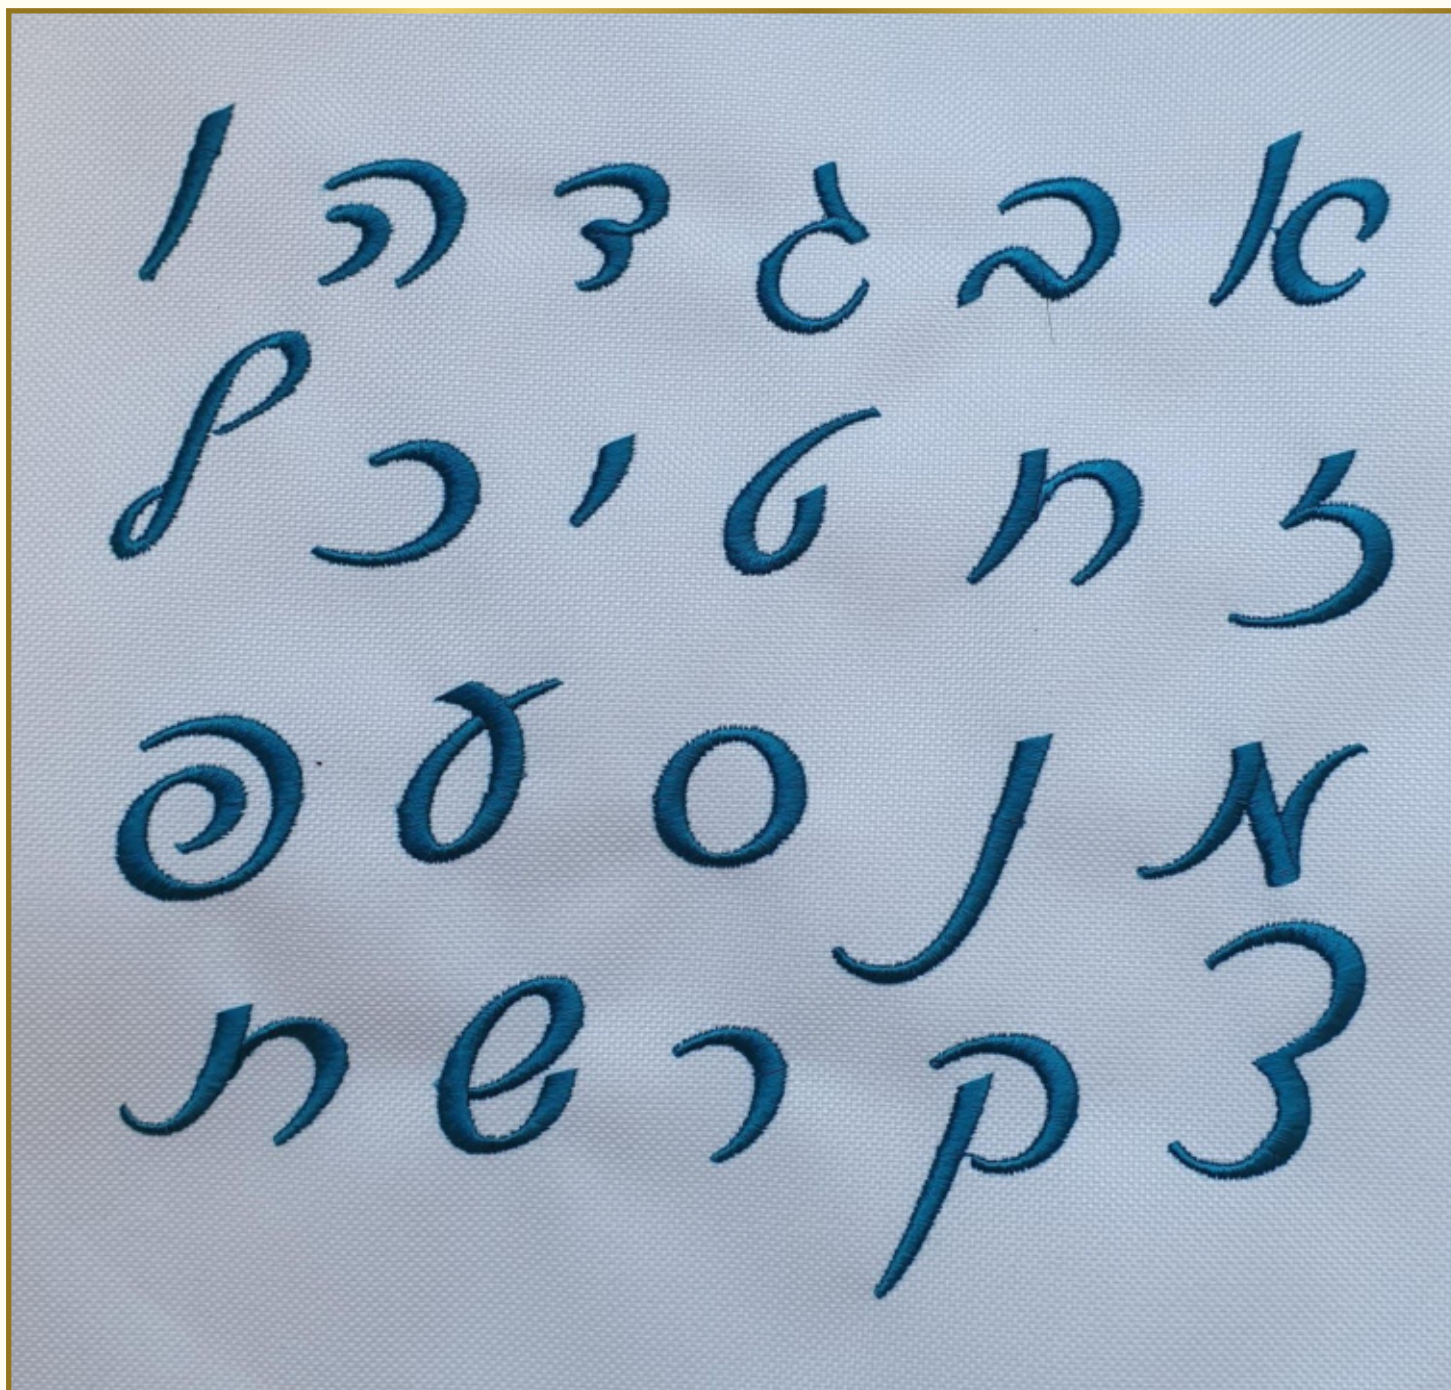 א ב ג ד ה ו
ז ח ט י כ ל
מ ן ס ע פ
צ ק ר ש ת